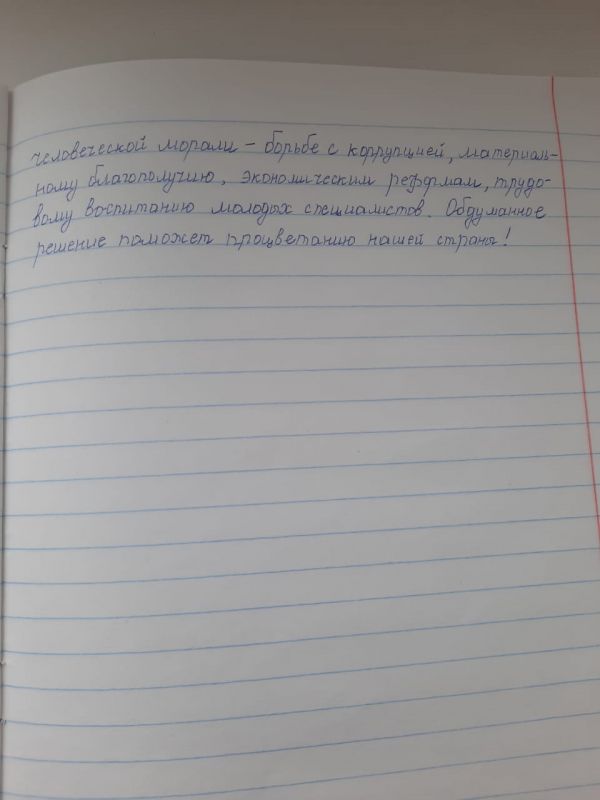 человеческой морали – борьбе с коррупцией, материаль-
ному благополучию, экономическим реформам, трудо-
вому воспитанию молодых специалистов. Обдуманное
решение поможет процветанию нашей страны!